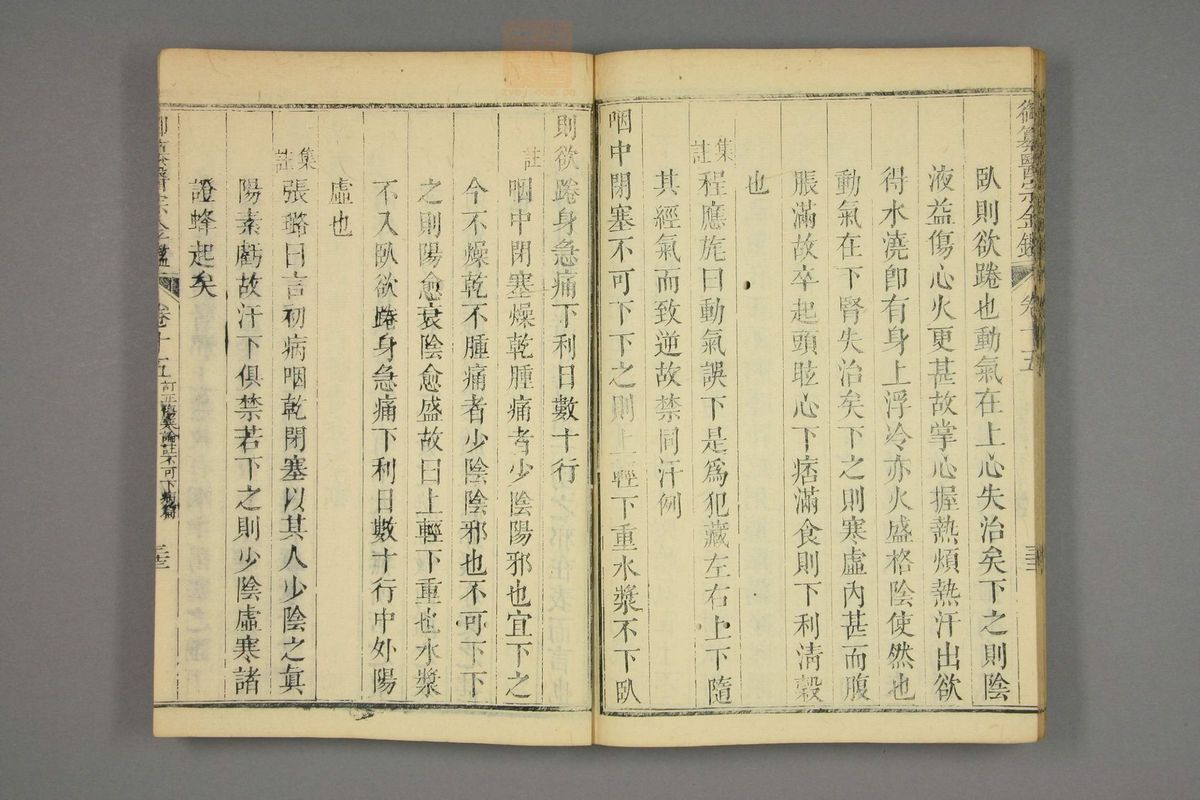 御纂醫宗金鑑 卷十五
臥則欲踡也動氣在上心失治矣下之則陰
液益傷心火更甚故掌心握熱煩熱汗出欲
得水澆卽有身上浮冷亦火盛格陰使然也
動氣在下腎失治矣下之則寒虛內甚而腹
脹滿故卒起頭眩心下痞滿食則下利淸穀
也
集註 程應旄曰動氣誤下是爲犯藏左右上下隨
其經氣而致逆故禁同汗例
咽中閉塞不可下下之則上輕下重水漿不下臥
則欲踡身急痛下利日數十行
註 咽中閉塞燥乾腫痛者少陰陽邪也宜下之
今不燥乾不腫痛者少陰陰邪也不可下下
之則陽愈衰陰愈盛故曰上輕下重也水漿
不入臥欲踡身急痛下利日數十行中外陽
虛也
集註 張璐曰言初病咽乾閉塞以其人少陰之眞
陽素虧故汗下俱禁若下之則少陰虛寒諸
證蜂起矣
卷十五 訂正傷寒論註不可下病篇